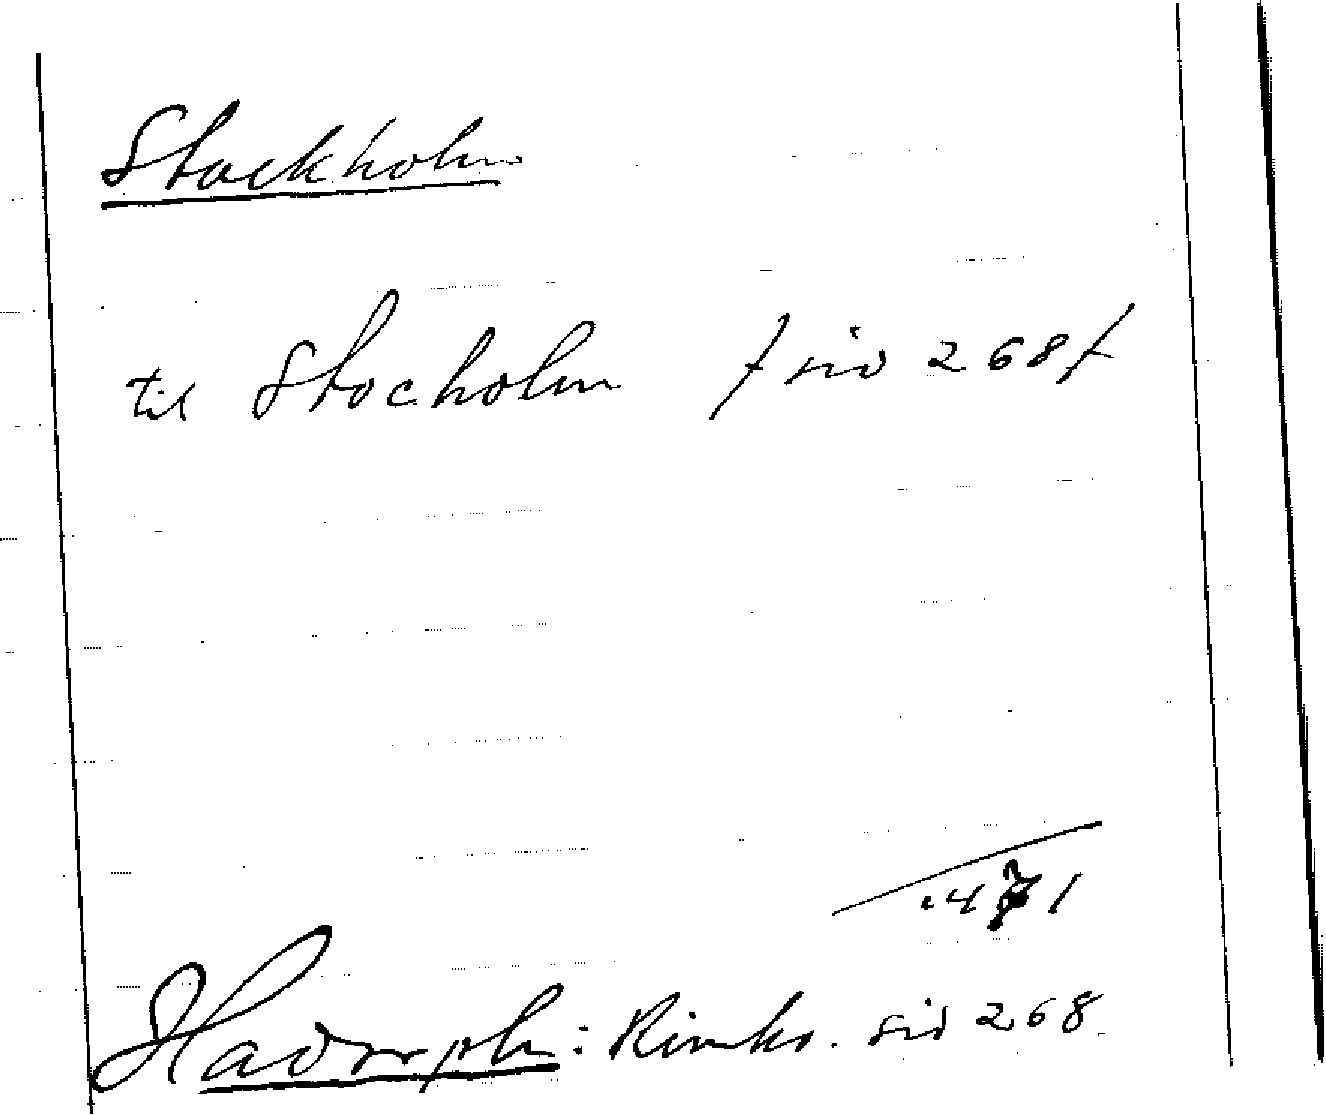 Stockholm
til Stocholm / sid 268 /
471
Hadorph: Rimkr. sid 268